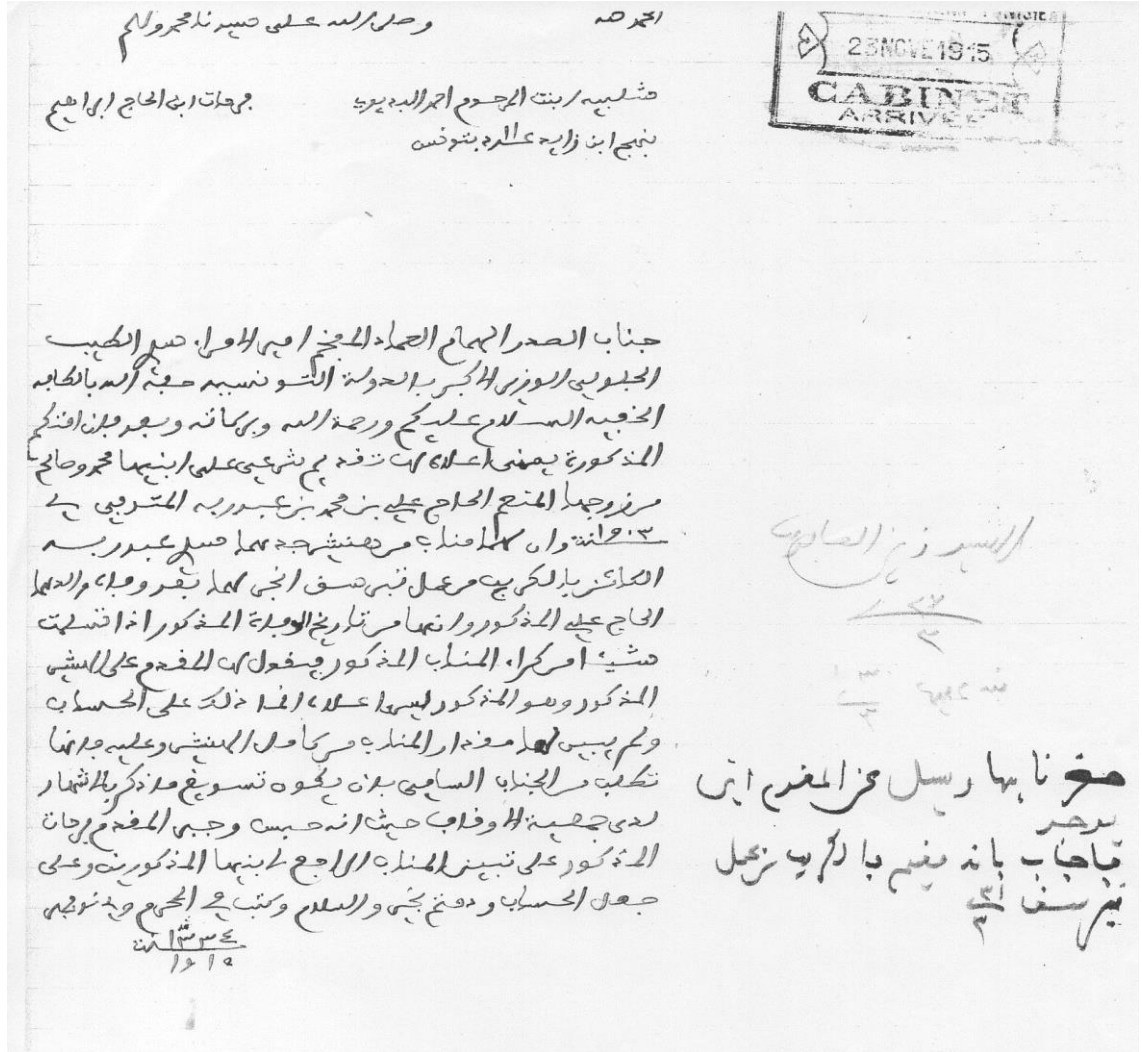 الحمد لله وصلى الله على سيدنا محمد وسلم
TUNISIE
23 NOVE 1915
CABINET
ARRIVEE
شلبيه بنت المرحوم احمد فرحات ابن الحاج ابراهيم
بنهج ابن زايد عدد بتونس
جناب الصدر الهمام العماد المفخم امير الامراء سي الطيب
الجلولي الوزير الاكبر بالدولة التونسيه حفه الله بالطافه
الخفيه السلام عليكم ورحمة الله وبركاته وبعد فان
المذكورة اعلاه لها تقديم شرعي على ابنيها محمد وصالح
من زوجها المنعم الحاج علي بن محمد بن عبد ربه المتوفى في
وان لهما مناب من هنشير جدهما سي عبد ربه
الكائن بالكريب من عمل تبرسق انجر لهما بعد وفاة والدهما
الحاج علي المذكور وانها من تاريخ الوفاة المذكور اذا تسلمت
شيئا من كراء المناب المذكور فيقول لها المقدم على الهنشير
المذكور وهو المذكور اعلاه ذلك على الحساب
ولم يبين لها مقدار المناب من كامل الهنشير وعليه فانها
تطلب من الجناب السامي بان يكون تسويغ ما ذكر بالاشهار
لدى جمعية الاوقاف حيث انه حبس وجبر المقدم فرحات
المذكور على تبيين المناب الراجع لابنيها المذكورين وعلى
جعل الحساب ودمتم بخير والسلام وكتب في المحرم وفي نوفمبر
١٣٣٤
١٩١٥
السيد زين العابدين
٢٧
٣
المقدم
يوجد
فاجاب بانه يقيم بالكريب من عمل
تبرسق ٣١
٣